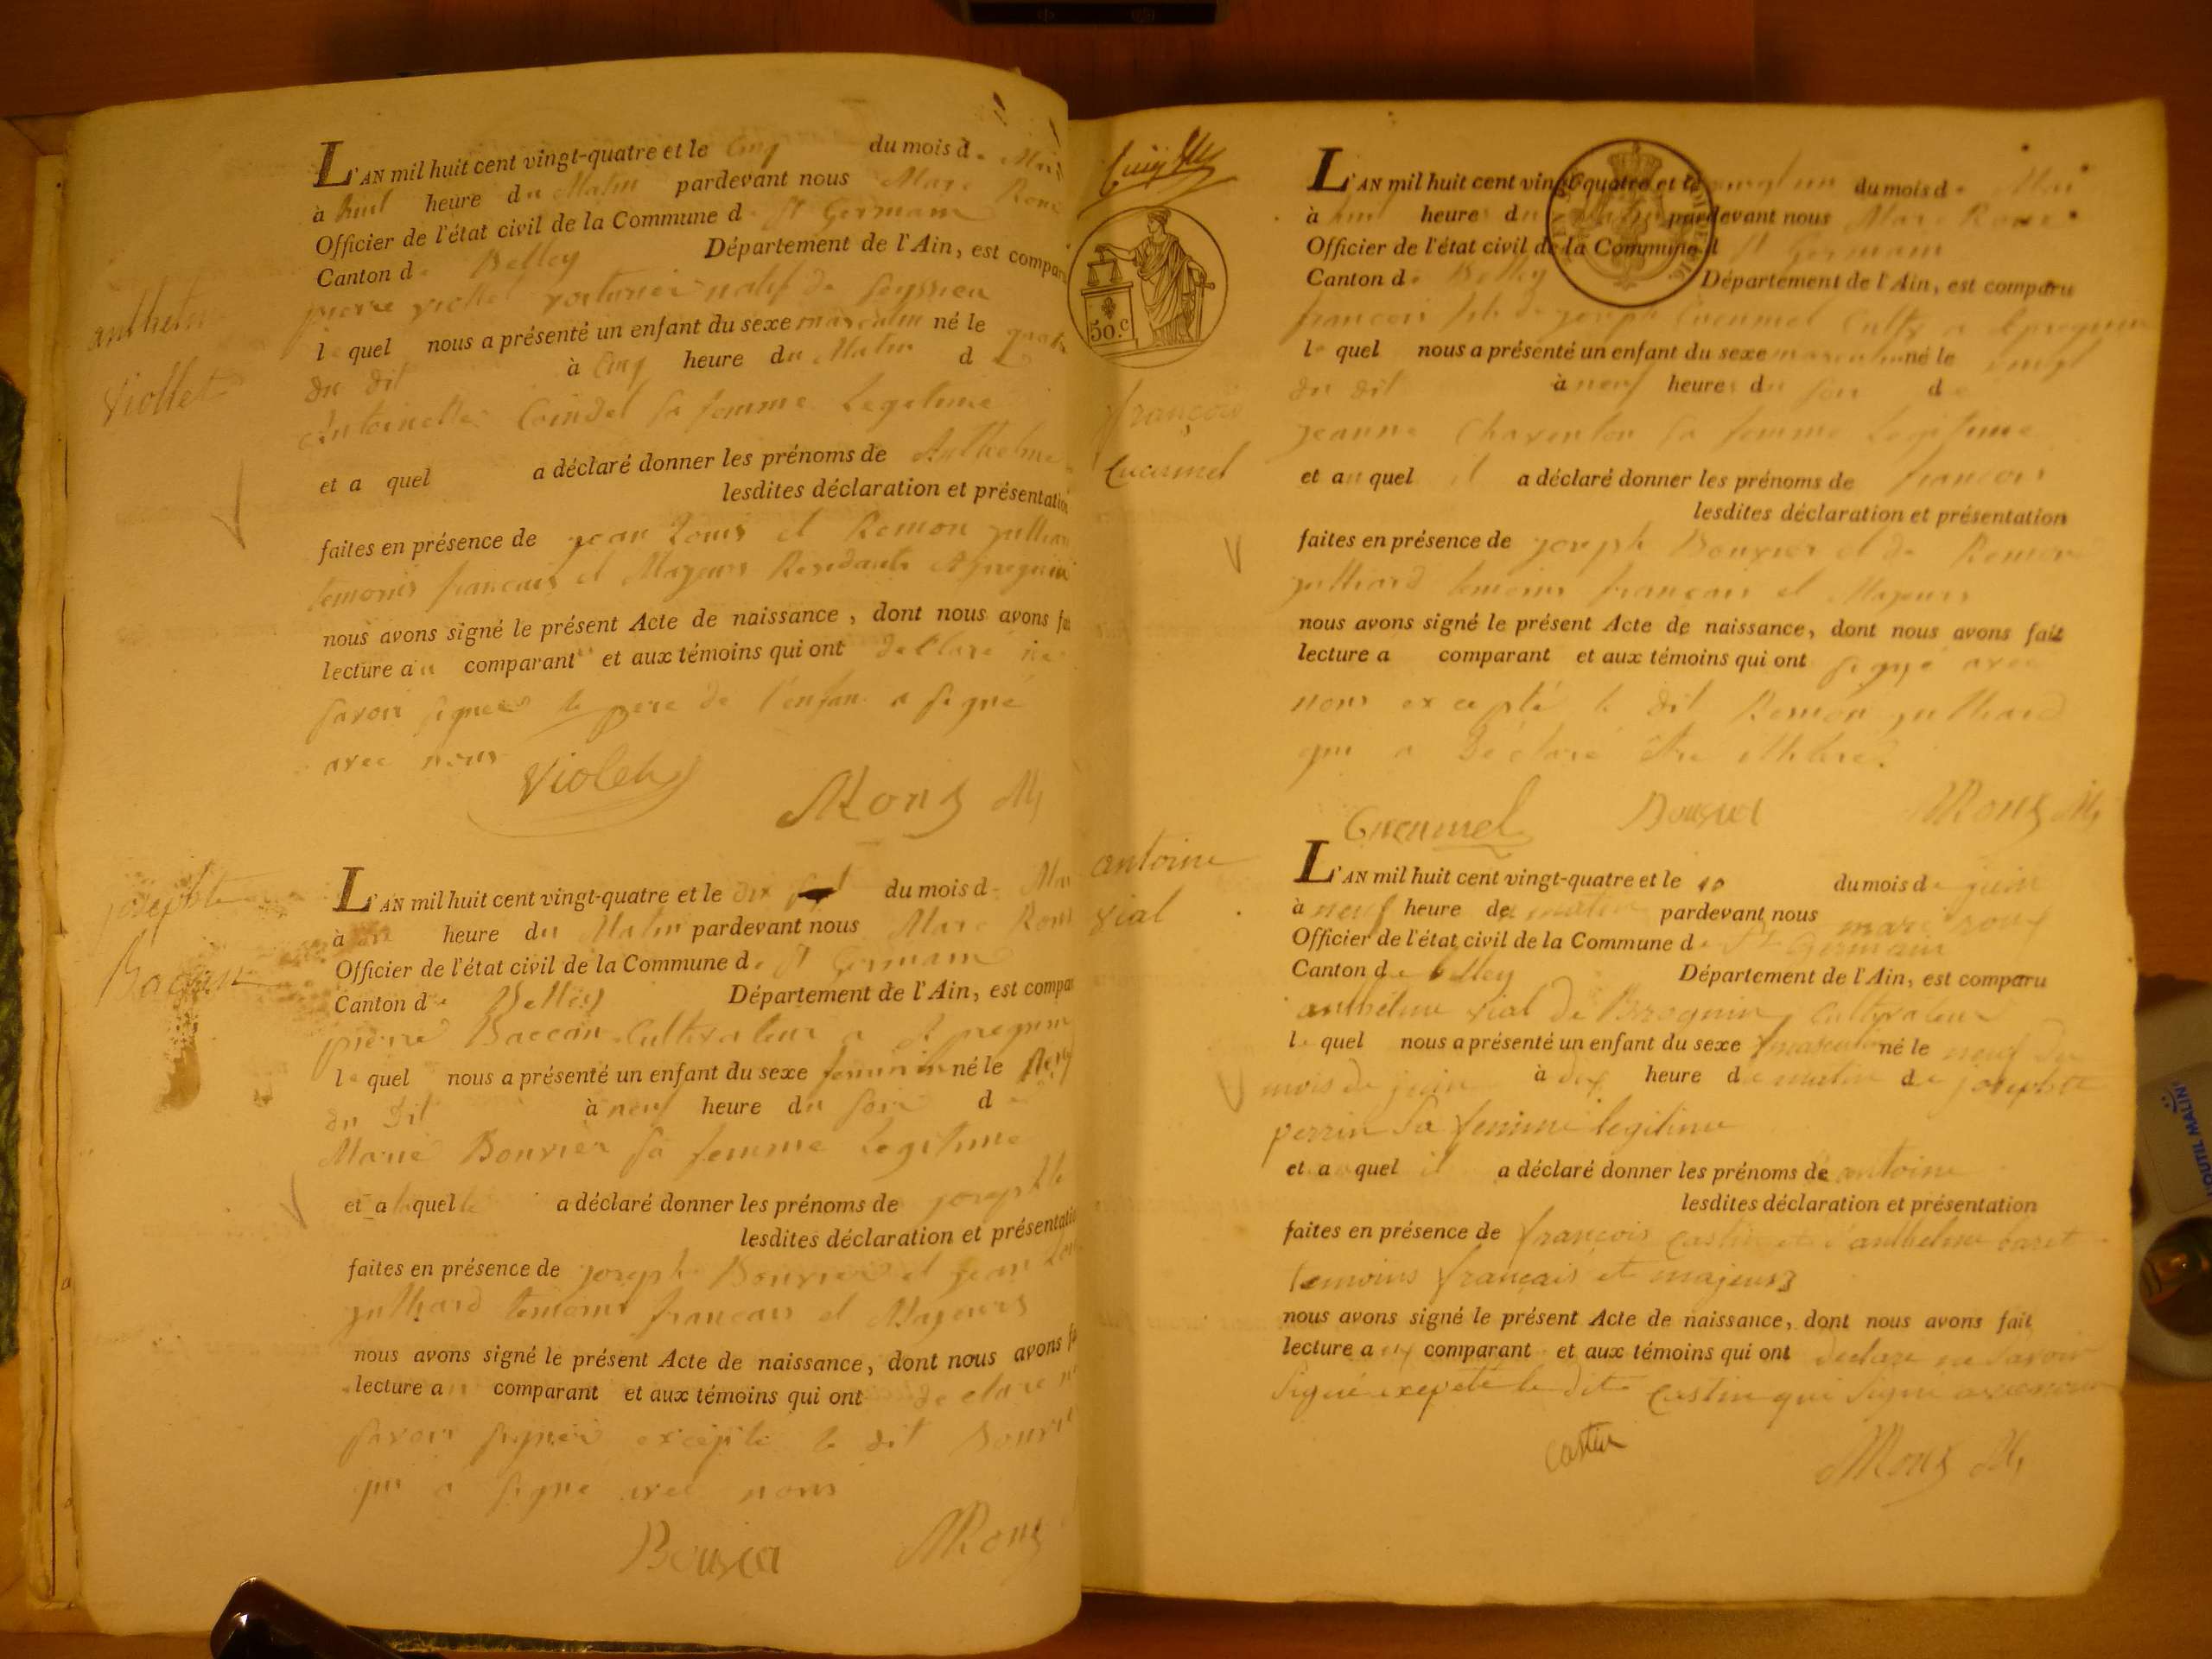 anthelm
Viollet
L'AN mil huit cent vingt-quatre et le Cinq du mois de Mai
à huit heure du Matin pardevant nous Marc Roux
Officier de l'état civil de la Commune de St Germain
Canton de Belley Département de l'Ain, est compar
pierre viollet voiturier natif de Seyssieu
le quel nous a présenté un enfant du sexe masculin né le quatre
du dit à Cinq heure du Matin d
Antoinette Coindet sa femme Legitime
et a quel a déclaré donner les prénoms de Anthelme
lesdites déclaration et présentation
faites en présence de jean Louis et Remon jullian
temoins francais et Majeurs
nous avons signé le présent Acte de naissance, dont nous avons fai
lecture au comparant et aux témoins qui ont declaré ne
savoir signer le pere de l'enfan a signé
avec nous
Violet
MRoux M
josephte
Baccan
L'AN mil huit cent vingt-quatre et le dix du mois de Mai
à heure du Matin pardevant nous Marc Roux
Officier de l'état civil de la Commune de St Germain
Canton de Belley Département de l'Ain, est compa
pierre Baccan Cultivateur a
le quel nous a présenté un enfant du sexe feminin né le
du Dit à neuf heure du soir d
Marie Bouvier sa femme Legitime
et a laquelle a déclaré donner les prénoms de josephte
lesdites déclaration et présentatio
faites en présence de joseph Bouvier et jean Lou
julliard temoins francais et Majeurs
nous avons signé le présent Acte de naissance, dont nous avons fa
lecture au comparant et aux témoins qui ont declaré n
savoir signer excepté le dit Bouvie
qui a signé avec nous
Bouvier
MRoux
50.c
françois
Cucumel
L'AN mil huit cent vingt-quatre et le vingt un du mois de Mai
à heures du pardevant nous Marc Roux
Officier de l'état civil de la Commune d St Germain
Canton de Belley Département de l'Ain, est comparu
francois fils de joseph Cucumel
le quel nous a présenté un enfant du sexe masculin né le vingt
du dit à neuf heures du soir de
jeanne Charenton sa femme Legitime
et au quel il a déclaré donner les prénoms de francois
lesdites déclaration et présentation
faites en présence de joseph Bouvier et de Remon
julliard temoins francais et Majeurs
nous avons signé le présent Acte de naissance, dont nous avons fait
lecture a comparant et aux témoins qui ont signé avec
nous excepté le dit Remon julliard
qui a Déclaré être illitéré.
Cucumel
Bouvier
MRoux M
antoine
vial
L'AN mil huit cent vingt-quatre et le 10 du mois de juin
à neuf heure de matin pardevant nous marc roux
Officier de l'état civil de la Commune de St Germain
Canton de belley Département de l'Ain, est comparu
anthelme vial de Brognin Cultivateur
le quel nous a présenté un enfant du sexe masculin né le neuf du
mois de juin à dix heure de matin de josephte
perrin sa femme legitime
et a quel il a déclaré donner les prénoms de antoine
lesdites déclaration et présentation
faites en présence de françois castin et d'anthelme
temoins français et majeurs
nous avons signé le présent Acte de naissance, dont nous avons fait
lecture a comparant et aux témoins qui ont declare ne savoir
signé exepeté le dit castin qui signé avec nous
castin
MRoux M
OUTIL MALIN